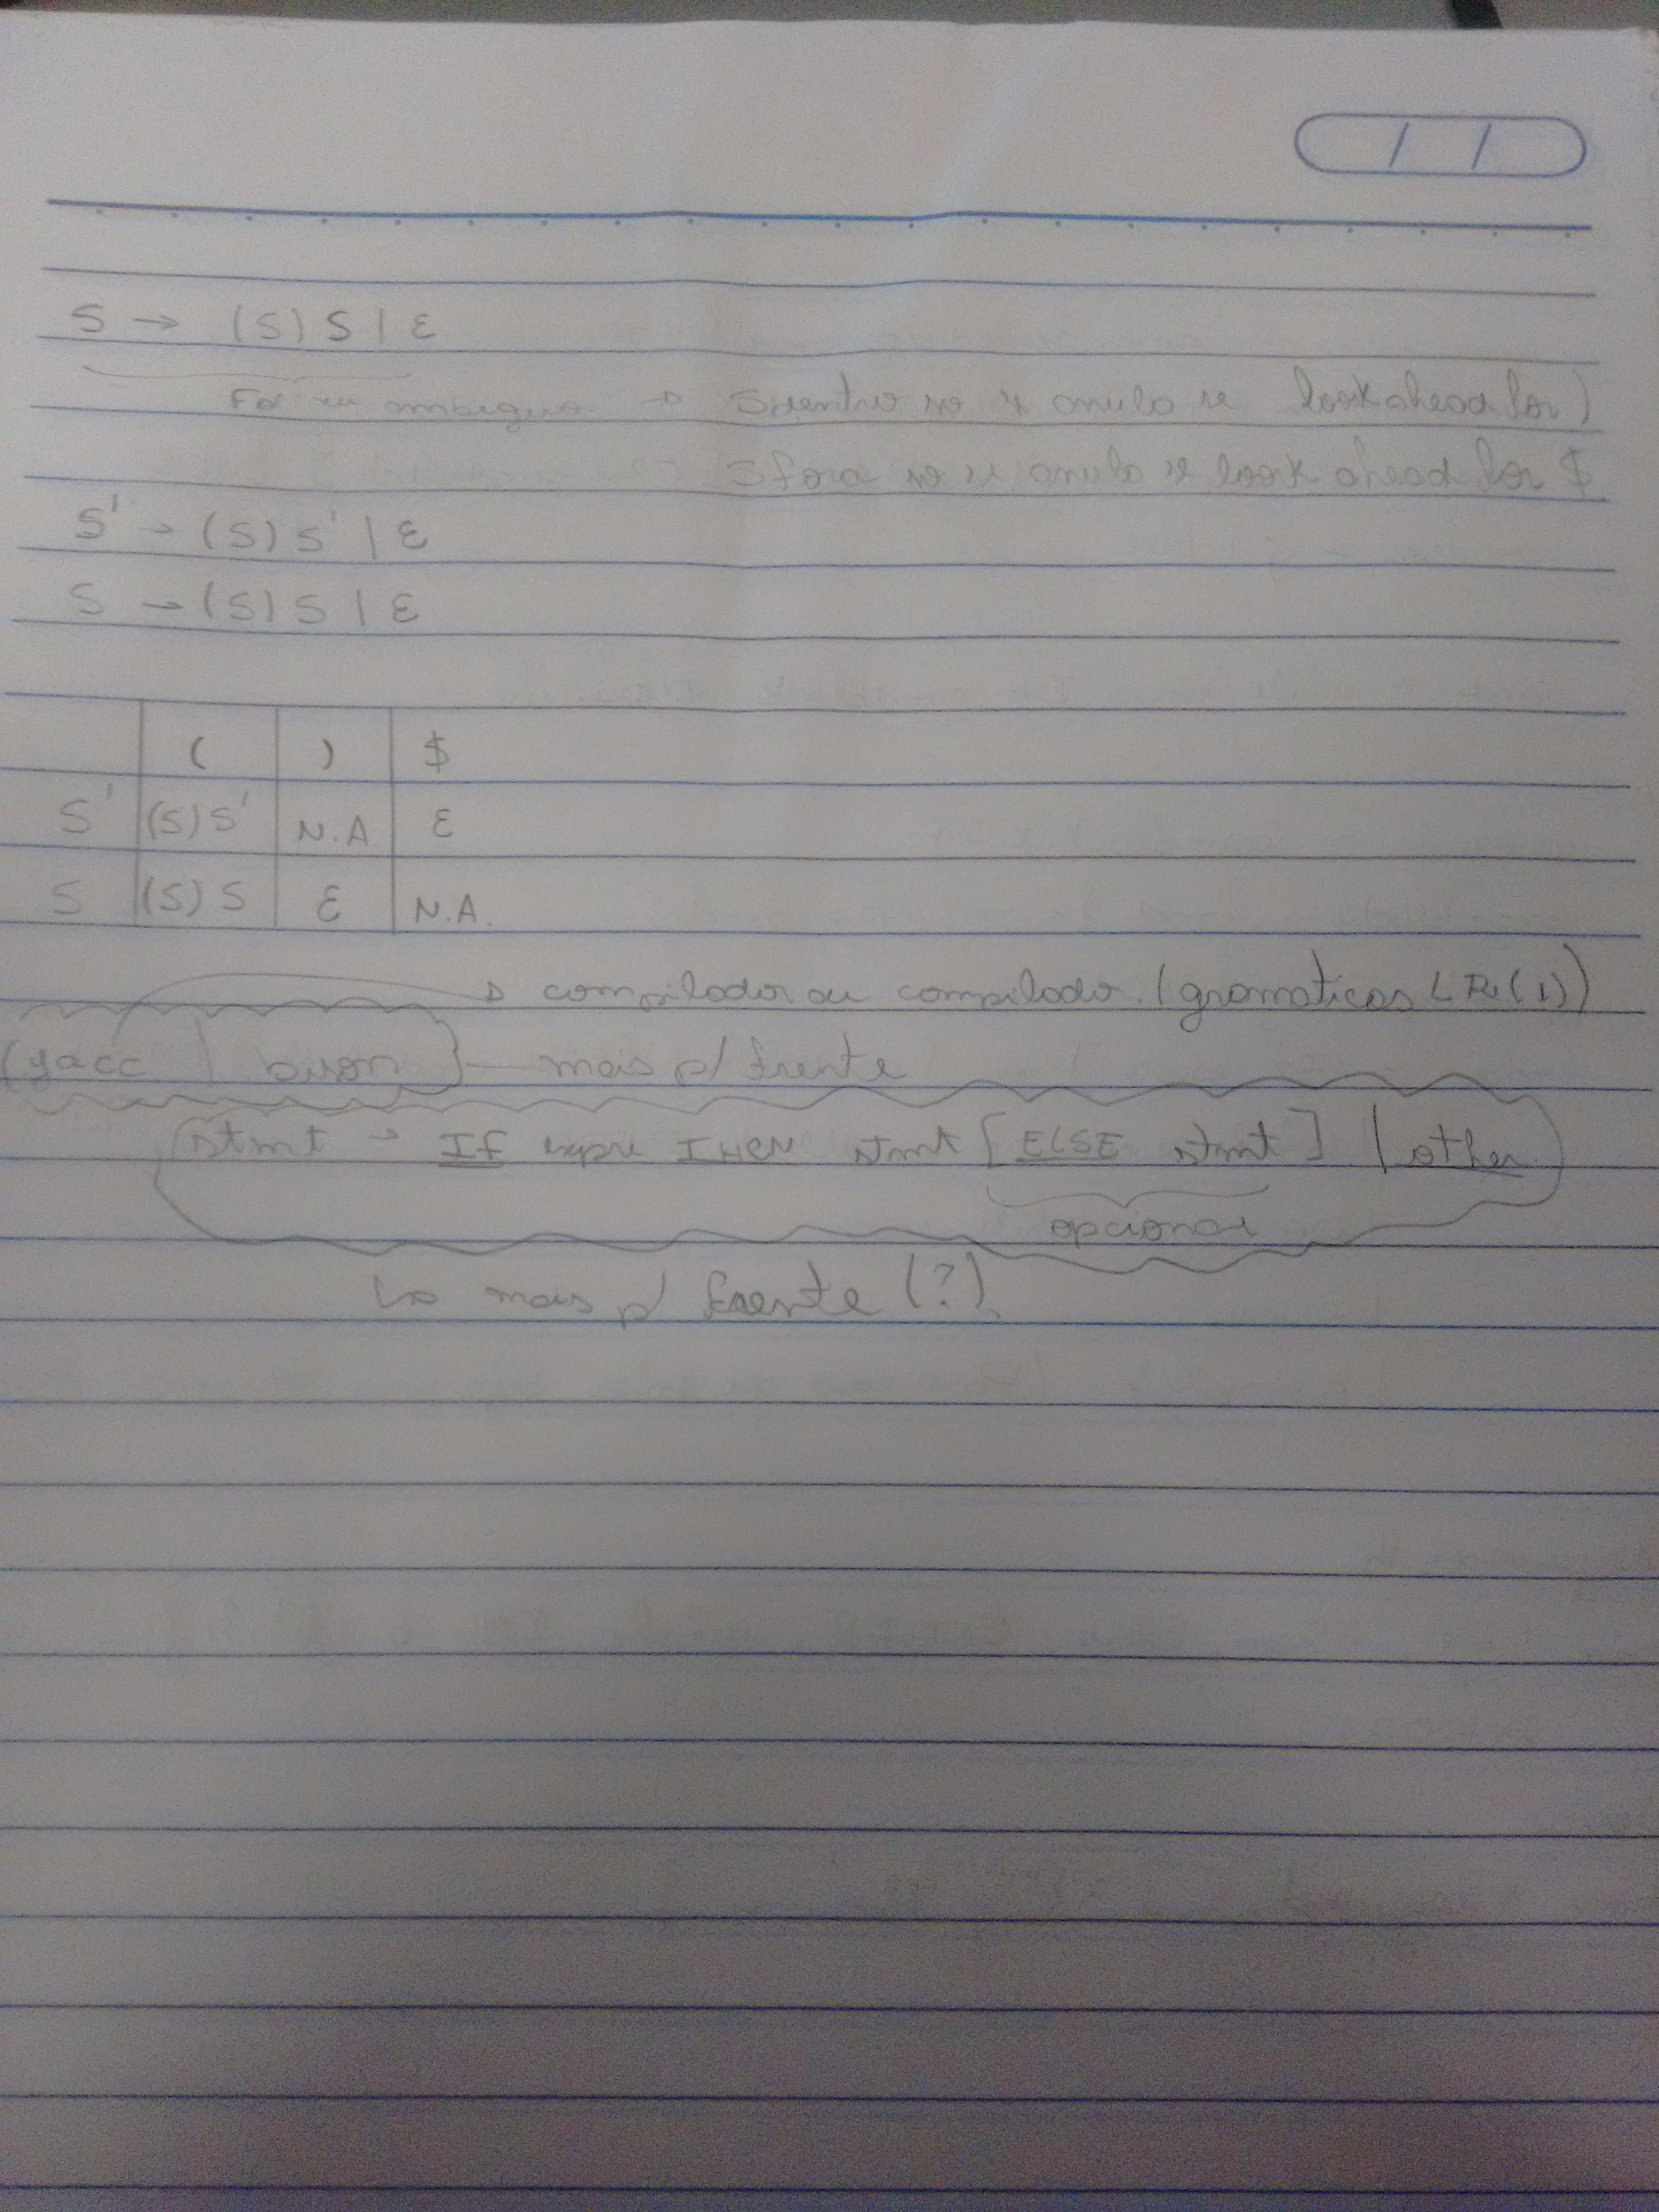 S → (S) S | ε
ambíguo → S dentro só se anula se lookahead for )
S fora só se anula se look ahead for $
S' → (S) S' | ε
S → (S) S | ε
( ) $
S' (S) S' N.A ε
S (S) S ε N.A.
→ compilador compilador. (gramaticas LR(1))
(yacc | bison) — mais p/ frente
stmt → If expr THEN stmt [ELSE stmt] | other
opcional
↳ mais p/ frente (?).